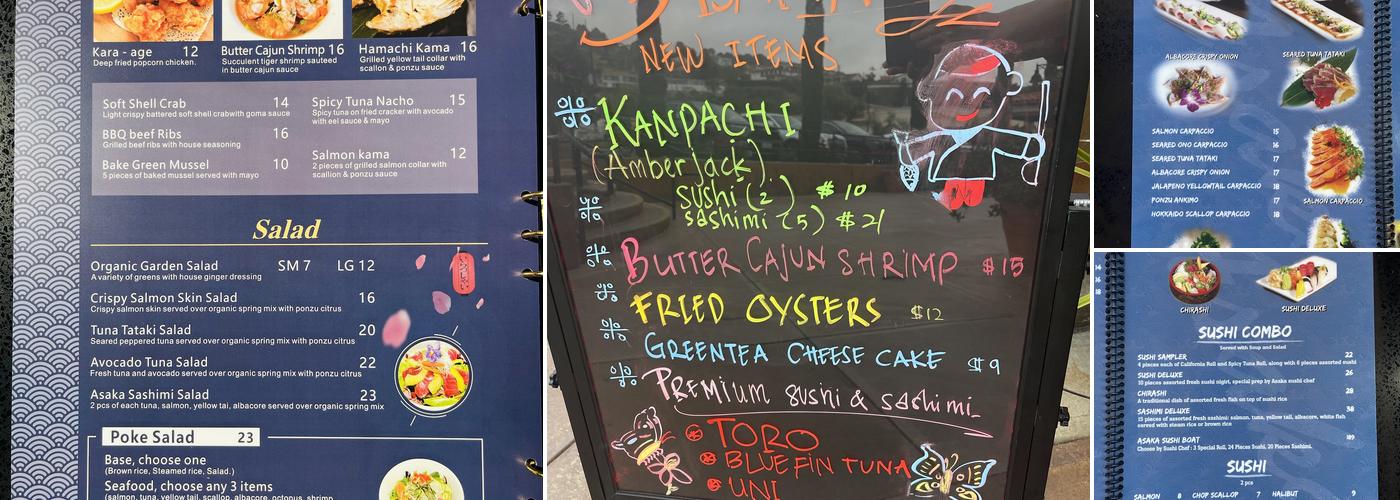 Kara - age 12
Deep fried popcorn chicken.
Butter Cajun Shrimp 16
Succulent tiger shrimp sauteed
in butter cajun sauce
Hamachi Kama 16
Grilled yellow tail collar with
scallion & ponzu sauce
Soft Shell Crab 14
Light crispy battered soft shell crabwith goma sauce
BBQ beef Ribs 16
Grilled beef ribs with house seasoning
Bake Green Mussel 10
5 pieces of baked mussel served with mayo
Spicy Tuna Nacho 15
Spicy tuna on fried cracker with avocado
with eel sauce & mayo
Salmon kama 12
2 pieces of grilled salmon collar with
scallion & ponzu sauce
Salad
Organic Garden Salad SM 7 LG 12
A variety of greens with house ginger dressing
Crispy Salmon Skin Salad 16
Crispy salmon skin served over organic spring mix with ponzu citrus
Tuna Tataki Salad 20
Seared peppered tuna served over organic spring mix with ponzu citrus
Avocado Tuna Salad 22
Fresh tuna and avocado served over organic spring mix with ponzu citrus
Asaka Sashimi Salad 23
2 pcs of each tuna, salmon, yellow tai, albacore served over organic spring mix
Poke Salad 23
Base, choose one
(Brown rice, Steamed rice, Salad.)
Seafood, choose any 3 items
(salmon, tuna, yellow tail, scallop, albacore, octopus, shrimp
NEW ITEMS
KANPACHI
(Amberjack)
sushi (2) $10
sashimi (5) $21
BUTTER CAJUN SHRIMP $15
FRIED OYSTERS $12
GREENTEA CHEESE CAKE $9
PREMIUM sushi & sashimi
TORO
BLUEFIN TUNA
UNI
ALBACORE CRISPY ONION
SEARED TUNA TATAKI
SALMON CARPACCIO 15
SEARED ONO CARPACCIO 16
SEARED TUNA TATAKI 17
ALBACORE CRISPY ONION 17
JALAPENO YELLOWTAIL CARPACCIO 18
PONZU ANKIMO 17
HOKKAIDO SCALLOP CARPACCIO 18
SALMON CARPACCIO
14
16
18
CHIRASHI
SUSHI DELUXE
SUSHI COMBO
Served with Soup and Salad
SUSHI SAMPLER 22
4 pieces each of California Roll and Spicy Tuna Roll, along with 6 pieces assorted sushi
SUSHI DELUXE 26
10 pieces assorted fresh sushi nigiri, special prep by Asaka sushi chef
CHIRASHI 28
A traditional dish of assorted fresh fish on top of sushi rice
SASHIMI DELUXE 38
15 pieces of assorted fresh sashimi: salmon, tuna, yellow tail, albacore, white fish
served with steam rice or brown rice
ASAKA SUSHI BOAT 189
Choose by Sushi Chef: 3 Special Roll, 24 Pieces Sushi, 20 Pieces Sashimi.
SUSHI
2 pcs
SALMON 8 CHOP SCALLOP 7 HALIBUT 9